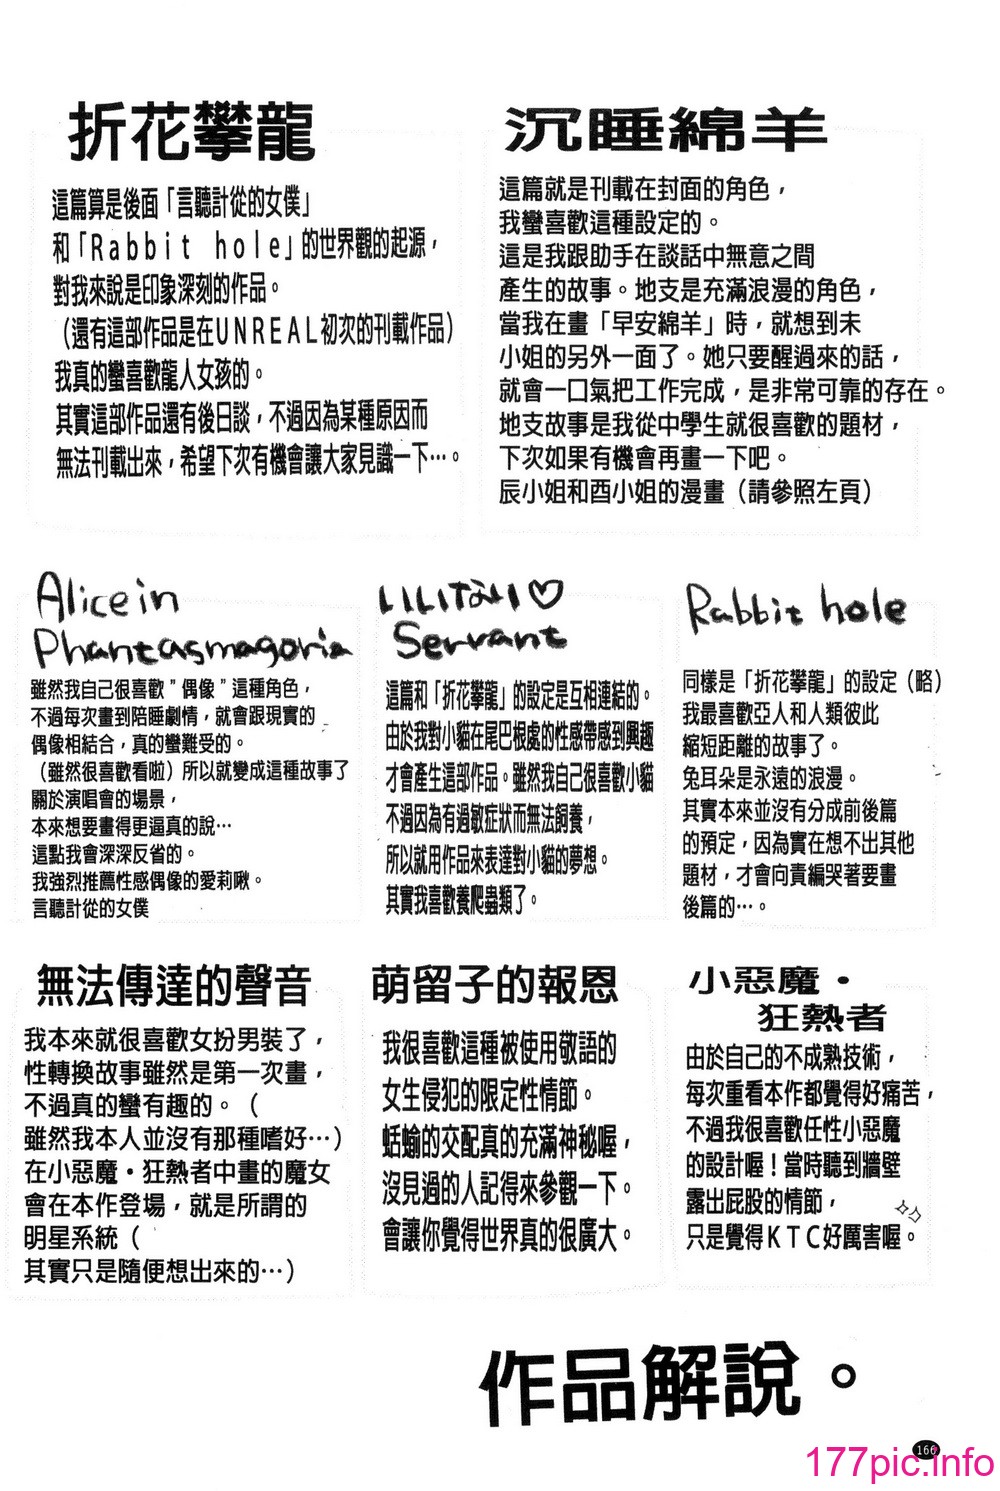 折花攀龍
這篇算是後面「言聽計從的女僕」
和「Rabbit hole」的世界觀的起源，
對我來說是印象深刻的作品。
（還有這部作品是在UNREAL初次的刊載作品）
我真的蠻喜歡龍人女孩的。
其實這部作品還有後日談，不過因為某種原因而
無法刊載出來，希望下次有機會讓大家見識一下…。
沉睡綿羊
這篇就是刊載在封面的角色，
我蠻喜歡這種設定的。
這是我跟助手在談話中無意之間
產生的故事。地支是充滿浪漫的角色，
當我在畫「早安綿羊」時，就想到未
小姐的另外一面了。她只要醒過來的話，
就會一口氣把工作完成，是非常可靠的存在。
地支故事是我從中學生就很喜歡的題材，
下次如果有機會再畫一下吧。
辰小姐和酉小姐的漫畫（請參照左頁）
Alice in
Phantasmagoria
雖然我自己很喜歡”偶像”這種角色，
不過每次畫到陪睡劇情，就會跟現實的
偶像相結合，真的蠻難受的。
（雖然很喜歡看啦）所以就變成這種故事了
關於演唱會的場景，
本來想要畫得更逼真的說…
這點我會深深反省的。
我強烈推薦性感偶像的愛莉啾。
言聽計從的女僕
いいなり♡
Servant
這篇和「折花攀龍」的設定是互相連結的。
由於我對小貓在尾巴根處的性感帶感到興趣
才會產生這部作品。雖然我自己很喜歡小貓
不過因為有過敏症狀而無法飼養，
所以就用作品來表達對小貓的夢想。
其實我喜歡養爬蟲類了。
Rabbit hole
同樣是「折花攀龍」的設定（略）
我最喜歡亞人和人類彼此
縮短距離的故事了。
兔耳朵是永遠的浪漫。
其實本來並沒有分成前後篇
的預定，因為實在想不出其他
題材，才會向責編哭著要畫
後篇的…。
無法傳達的聲音
我本來就很喜歡女扮男裝了，
性轉換故事雖然是第一次畫，
不過真的蠻有趣的。（
雖然我本人並沒有那種嗜好…）
在小惡魔・狂熱者中畫的魔女
會在本作登場，就是所謂的
明星系統（
其實只是隨便想出來的…）
萌留子的報恩
我很喜歡這種被使用敬語的
女生侵犯的限定性情節。
蛞蝓的交配真的充滿神秘喔，
沒見過的人記得來參觀一下。
會讓你覺得世界真的很廣大。
小惡魔・
狂熱者
由於自己的不成熟技術，
每次重看本作都覺得好痛苦，
不過我很喜歡任性小惡魔
的設計喔！當時聽到牆壁
露出屁股的情節，
只是覺得KTC好厲害喔。
作品解說。
166
177pic.info